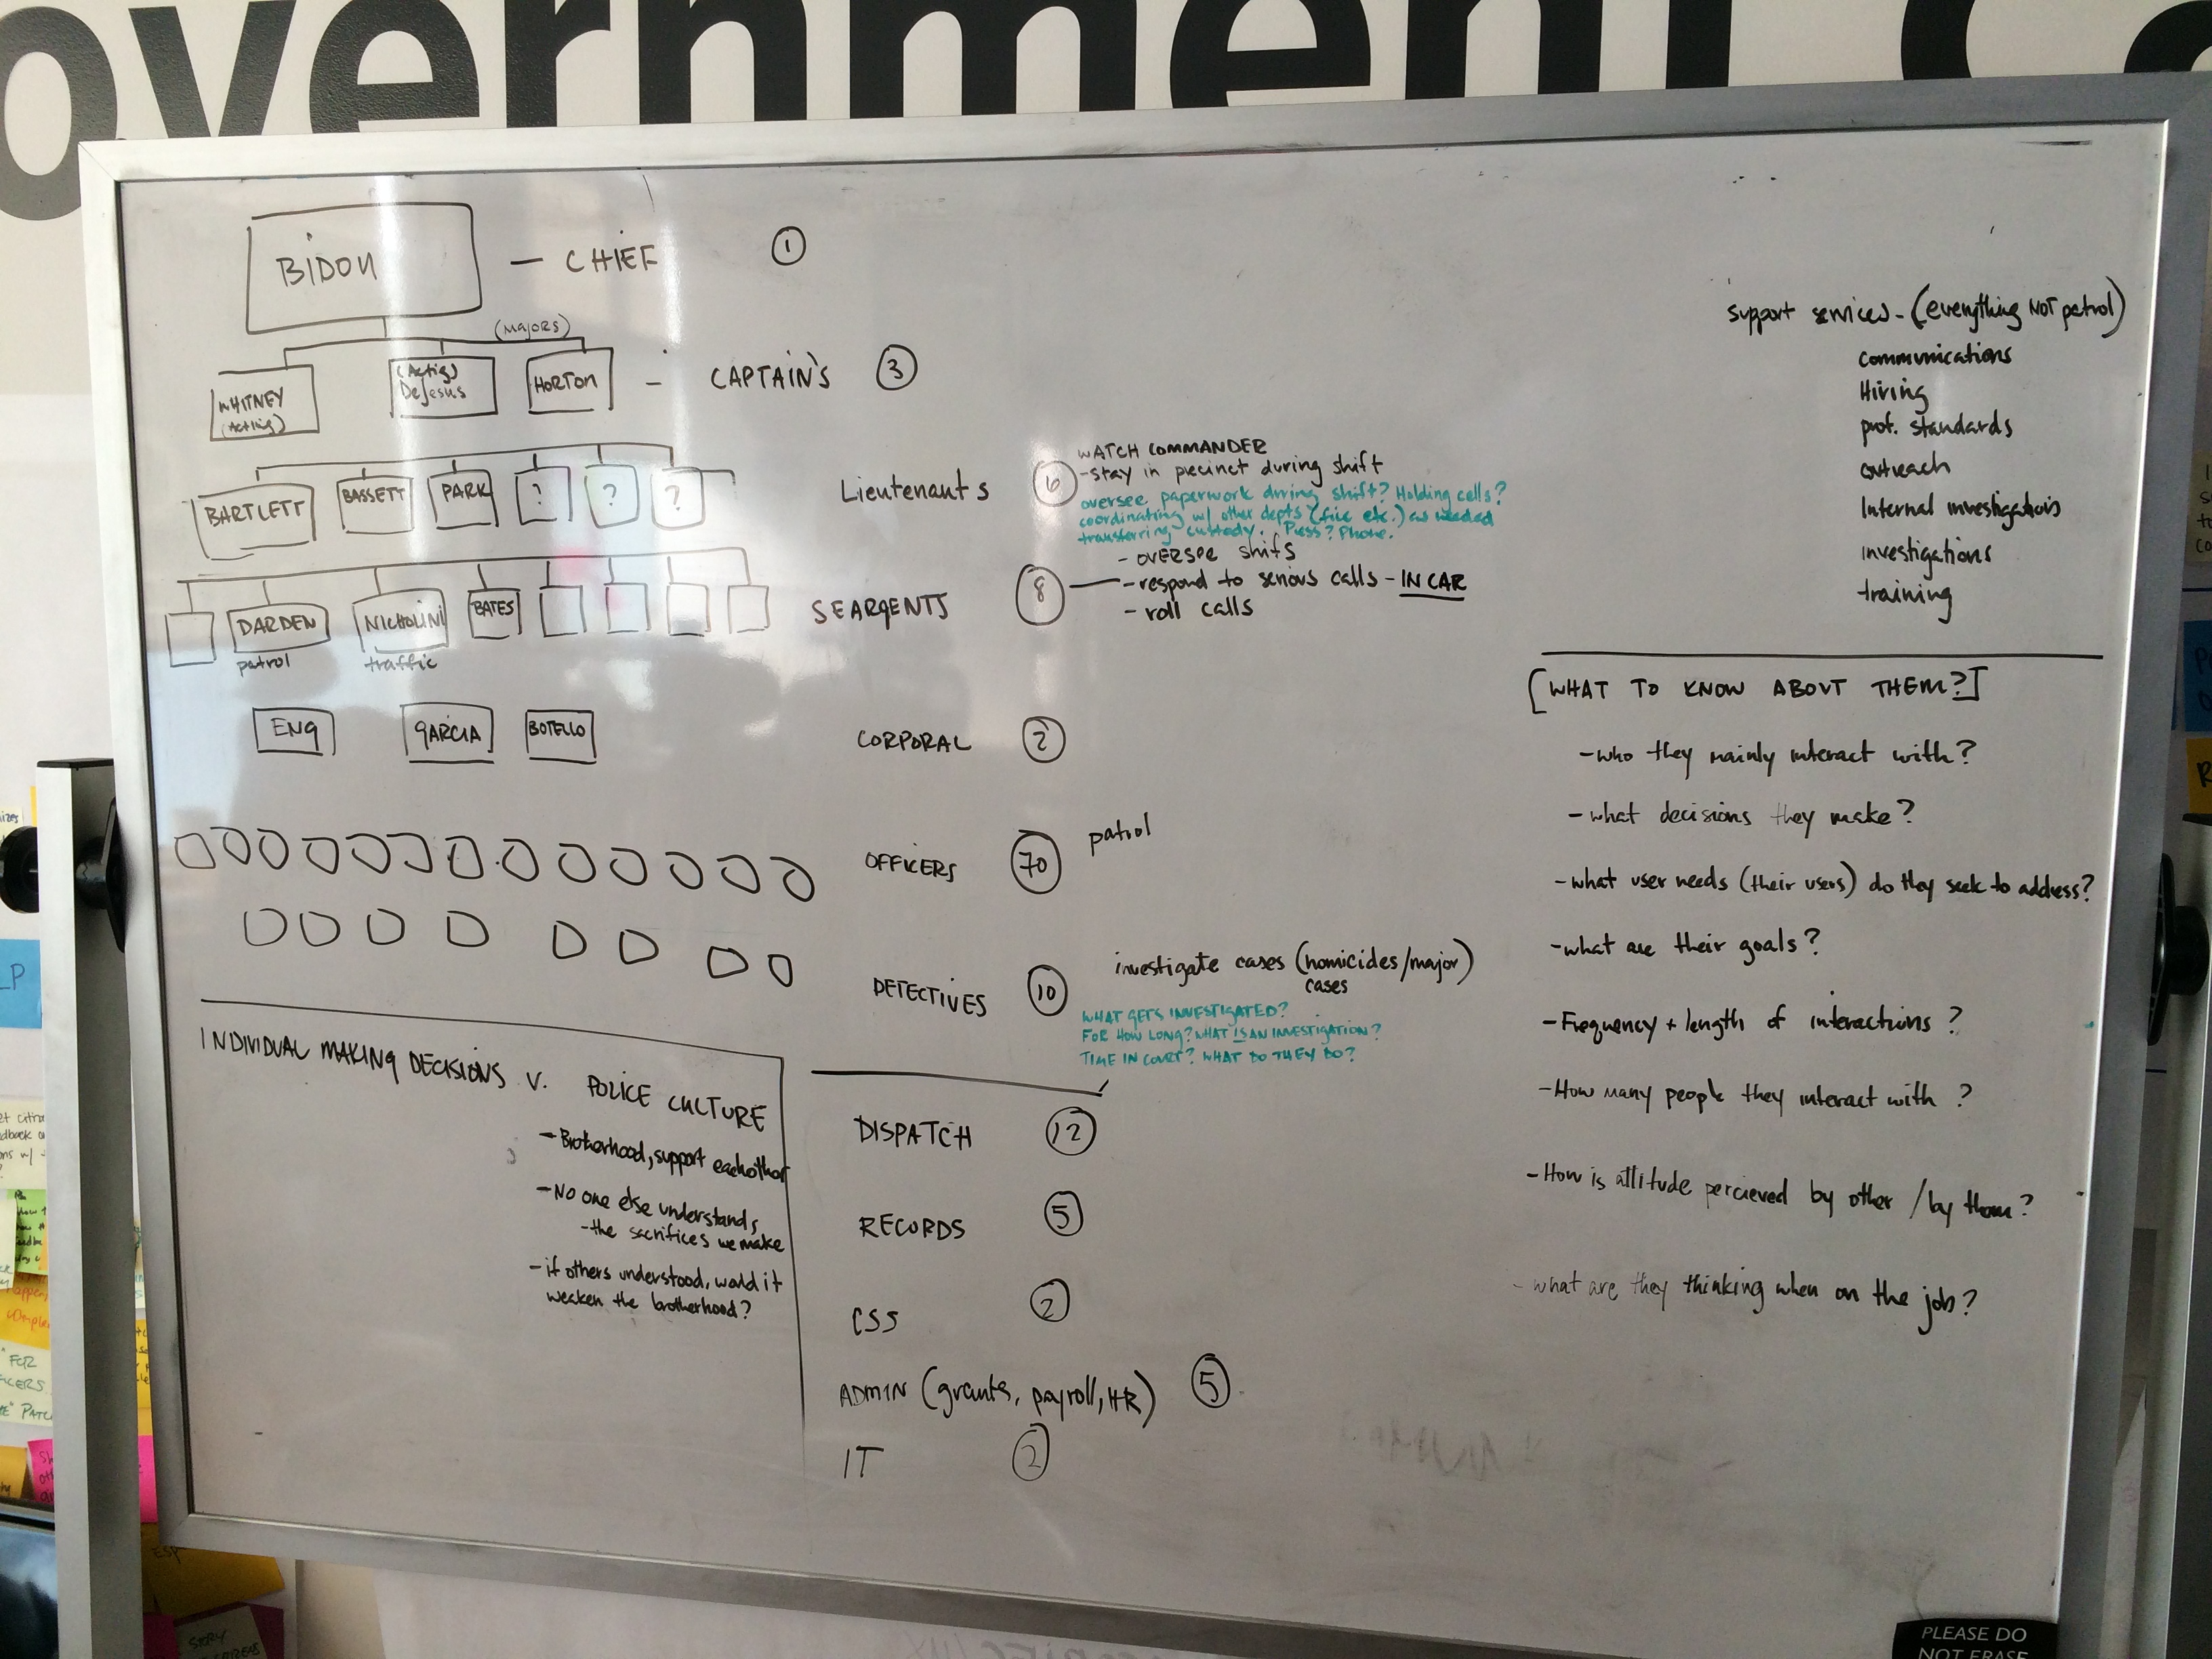 overnment Ca
BIDON — CHIEF 1
(MAJORS)
WHITNEY
(Acting)
(Actig)
DeJesus
HORTON
- CAPTAIN'S 3
BARTLETT
BASSETT
PARK
?
?
?
Lieutenants 6
WATCH COMMANDER
-stay in precinct during shift
oversee paperwork during shift? Holding cells?
coordinating w/ other depts (fire etc.) as needed
transferring custody. Press? Phone.
DARDEN
patrol
NICHOLINI
traffic
BATES
SEARGENTS 8
- oversee shifs
- respond to serious calls - IN CAR
- roll calls
ENG
GARCIA
BOTELLO
CORPORAL 2
OFFICERS 70 patrol
DETECTIVES 10
investigate cases (homicides/major)
cases
WHAT GETS INVESTIGATED?
FOR HOW LONG? WHAT IS AN INVESTIGATION?
TIME IN COURT? WHAT DO THEY DO?
INDIVIDUAL MAKING DECISIONS V. POLICE CULTURE
- Brotherhood, support eachother
- No one else understands,
- the sacrifices we make
- if others understood, would it
weaken the brotherhood?
DISPATCH 12
RECORDS 5
CSS 2
ADMIN (grants, payroll, HR) 5
IT 2
support services - (everything NOT patrol)
communications
Hiring
prof. standards
outreach
Internal investigations
investigations
training
[WHAT TO KNOW ABOUT THEM?]
- who they mainly interact with?
- what decisions they make?
- what user needs (their users) do they seek to address?
- what are their goals?
- Frequency + length of interactions?
- How many people they interact with?
- How is attitude percieved by other / by them?
- what are they thinking when on the job?
PLEASE DO
NOT ERASE
LP
"FOR
ESP
STORY